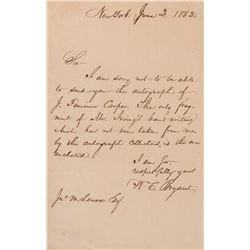 New York June 2, 1852.
Sir
I am sorry not to be able
to send you the autograph of
J. Fenimore Cooper. The only frag-
ment of Mr. Irving's handwriting
which has not been taken from me
by the autograph collectors, is the one
enclosed.
I am Sir,
respectfully yours
Wm. C. Bryant.
Jno. Esq.